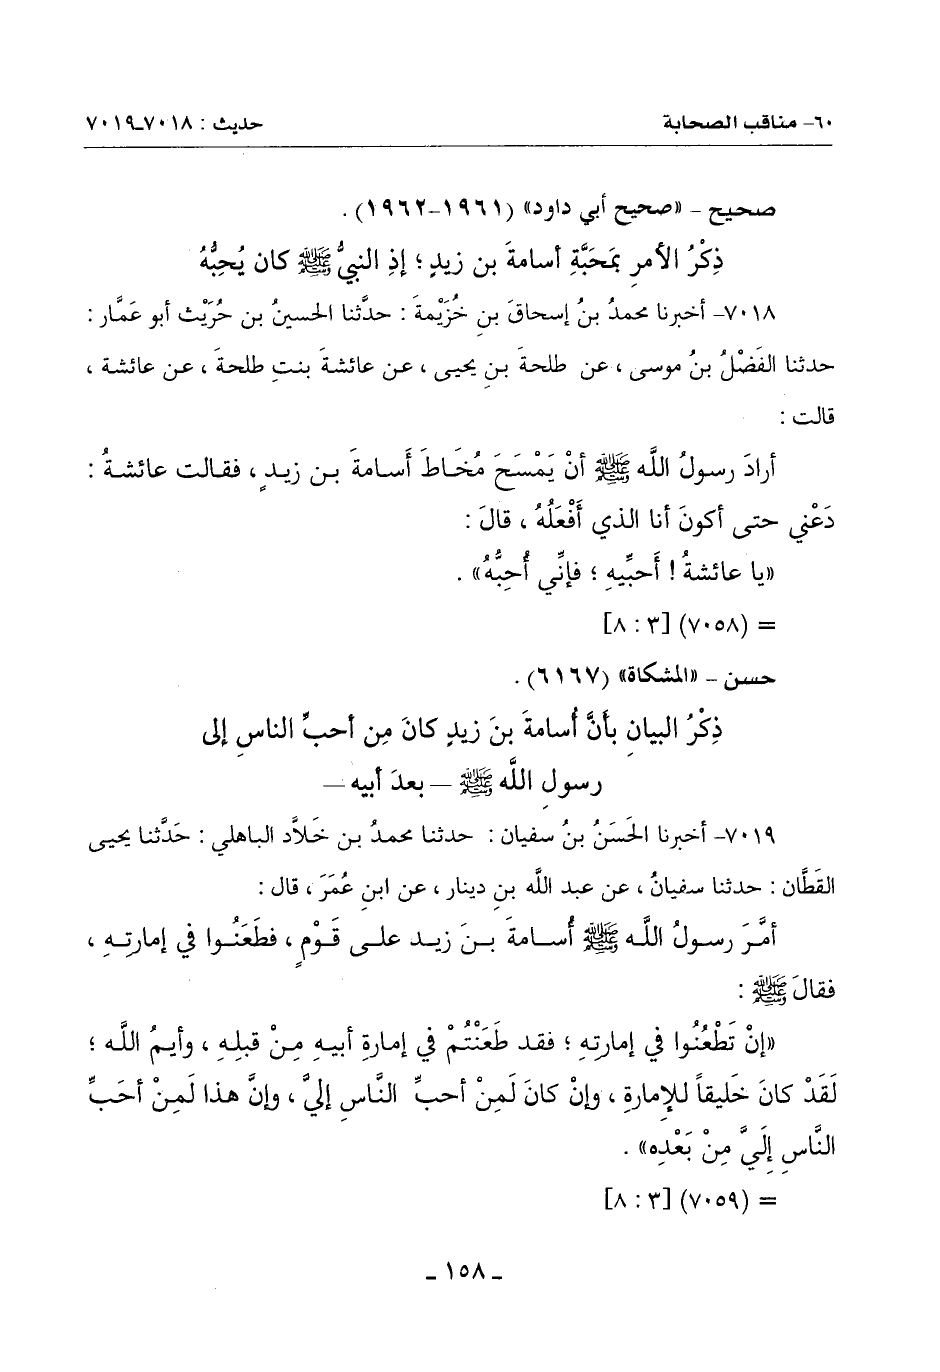 ٦٠- مناقب الصحابة حديث : ٧٠١٨-٧٠١٩
صحيح - «صحيح أبي داود» (١٩٦١-١٩٦٢) .
ذِكْرُ الأمرِ بمَحَبَّةِ أسامةَ بن زيدٍ ؛ إذِ النبيُّ ﷺ كان يُحِبُّهُ
٧٠١٨- أخبرنا محمدُ بنُ إسحاقَ بنِ خُزَيْمةَ : حدَّثنا الحسينُ بن حُرَيْث أبو عَمَّار :
حدثنا الفَضْلُ بنُ موسى ، عن طلحةَ بنِ يحيى ، عن عائشةَ بنتِ طلحةَ ، عن عائشة ،
قالت :
أرادَ رسولُ اللَّه ﷺ أنْ يَمْسَحَ مُخَاطَ أَسامةَ بن زيدٍ ، فقالت عائشةُ :
دَعْني حتى أكونَ أنا الذي أَفْعَلُهُ ، قالَ :
«يا عائشةُ ! أَحبِّيهِ ؛ فإنِّي أُحِبُّهُ» .
= (٧٠٥٨) [٣ : ٨]
حسن - «المشكاة» (٦١٦٧) .
ذِكْرُ البيانِ بأنَّ أُسامةَ بنَ زيدٍ كانَ مِن أحبِّ الناسِ إلى
رسولِ اللَّه ﷺ – بعدَ أبيه –
٧٠١٩- أخبرنا الحَسَنُ بنُ سفيان : حدثنا محمدُ بن خَلاَّد الباهلي : حَدَّثنا يحيى
القَطَّان : حدثنا سفيانُ ، عن عبد اللَّه بنِ دينار ، عن ابنِ عُمَرَ ، قال :
أمَّرَ رسولُ اللَّه ﷺ أُسامةَ بنَ زيد على قَوْمٍ ، فطَعَنُوا في إمارتِهِ ،
فقالَ ﷺ :
«إنْ تَطْعُنُوا في إمارتهِ ؛ فقد طَعَنْتُمْ في إمارةِ أبيهِ مِنْ قبلِهِ ، وأيمُ اللَّه ؛
لَقَدْ كانَ خَليقاً للإمارةِ ، وإنْ كانَ لَمِنْ أحبِّ النَّاسِ إليَّ ، وإنَّ هذا لَمِنْ أحَبِّ
النَّاسِ إلَيَّ مِنْ بَعْدِه» .
= (٧٠٥٩) [٣ : ٨]
- ١٥٨ -